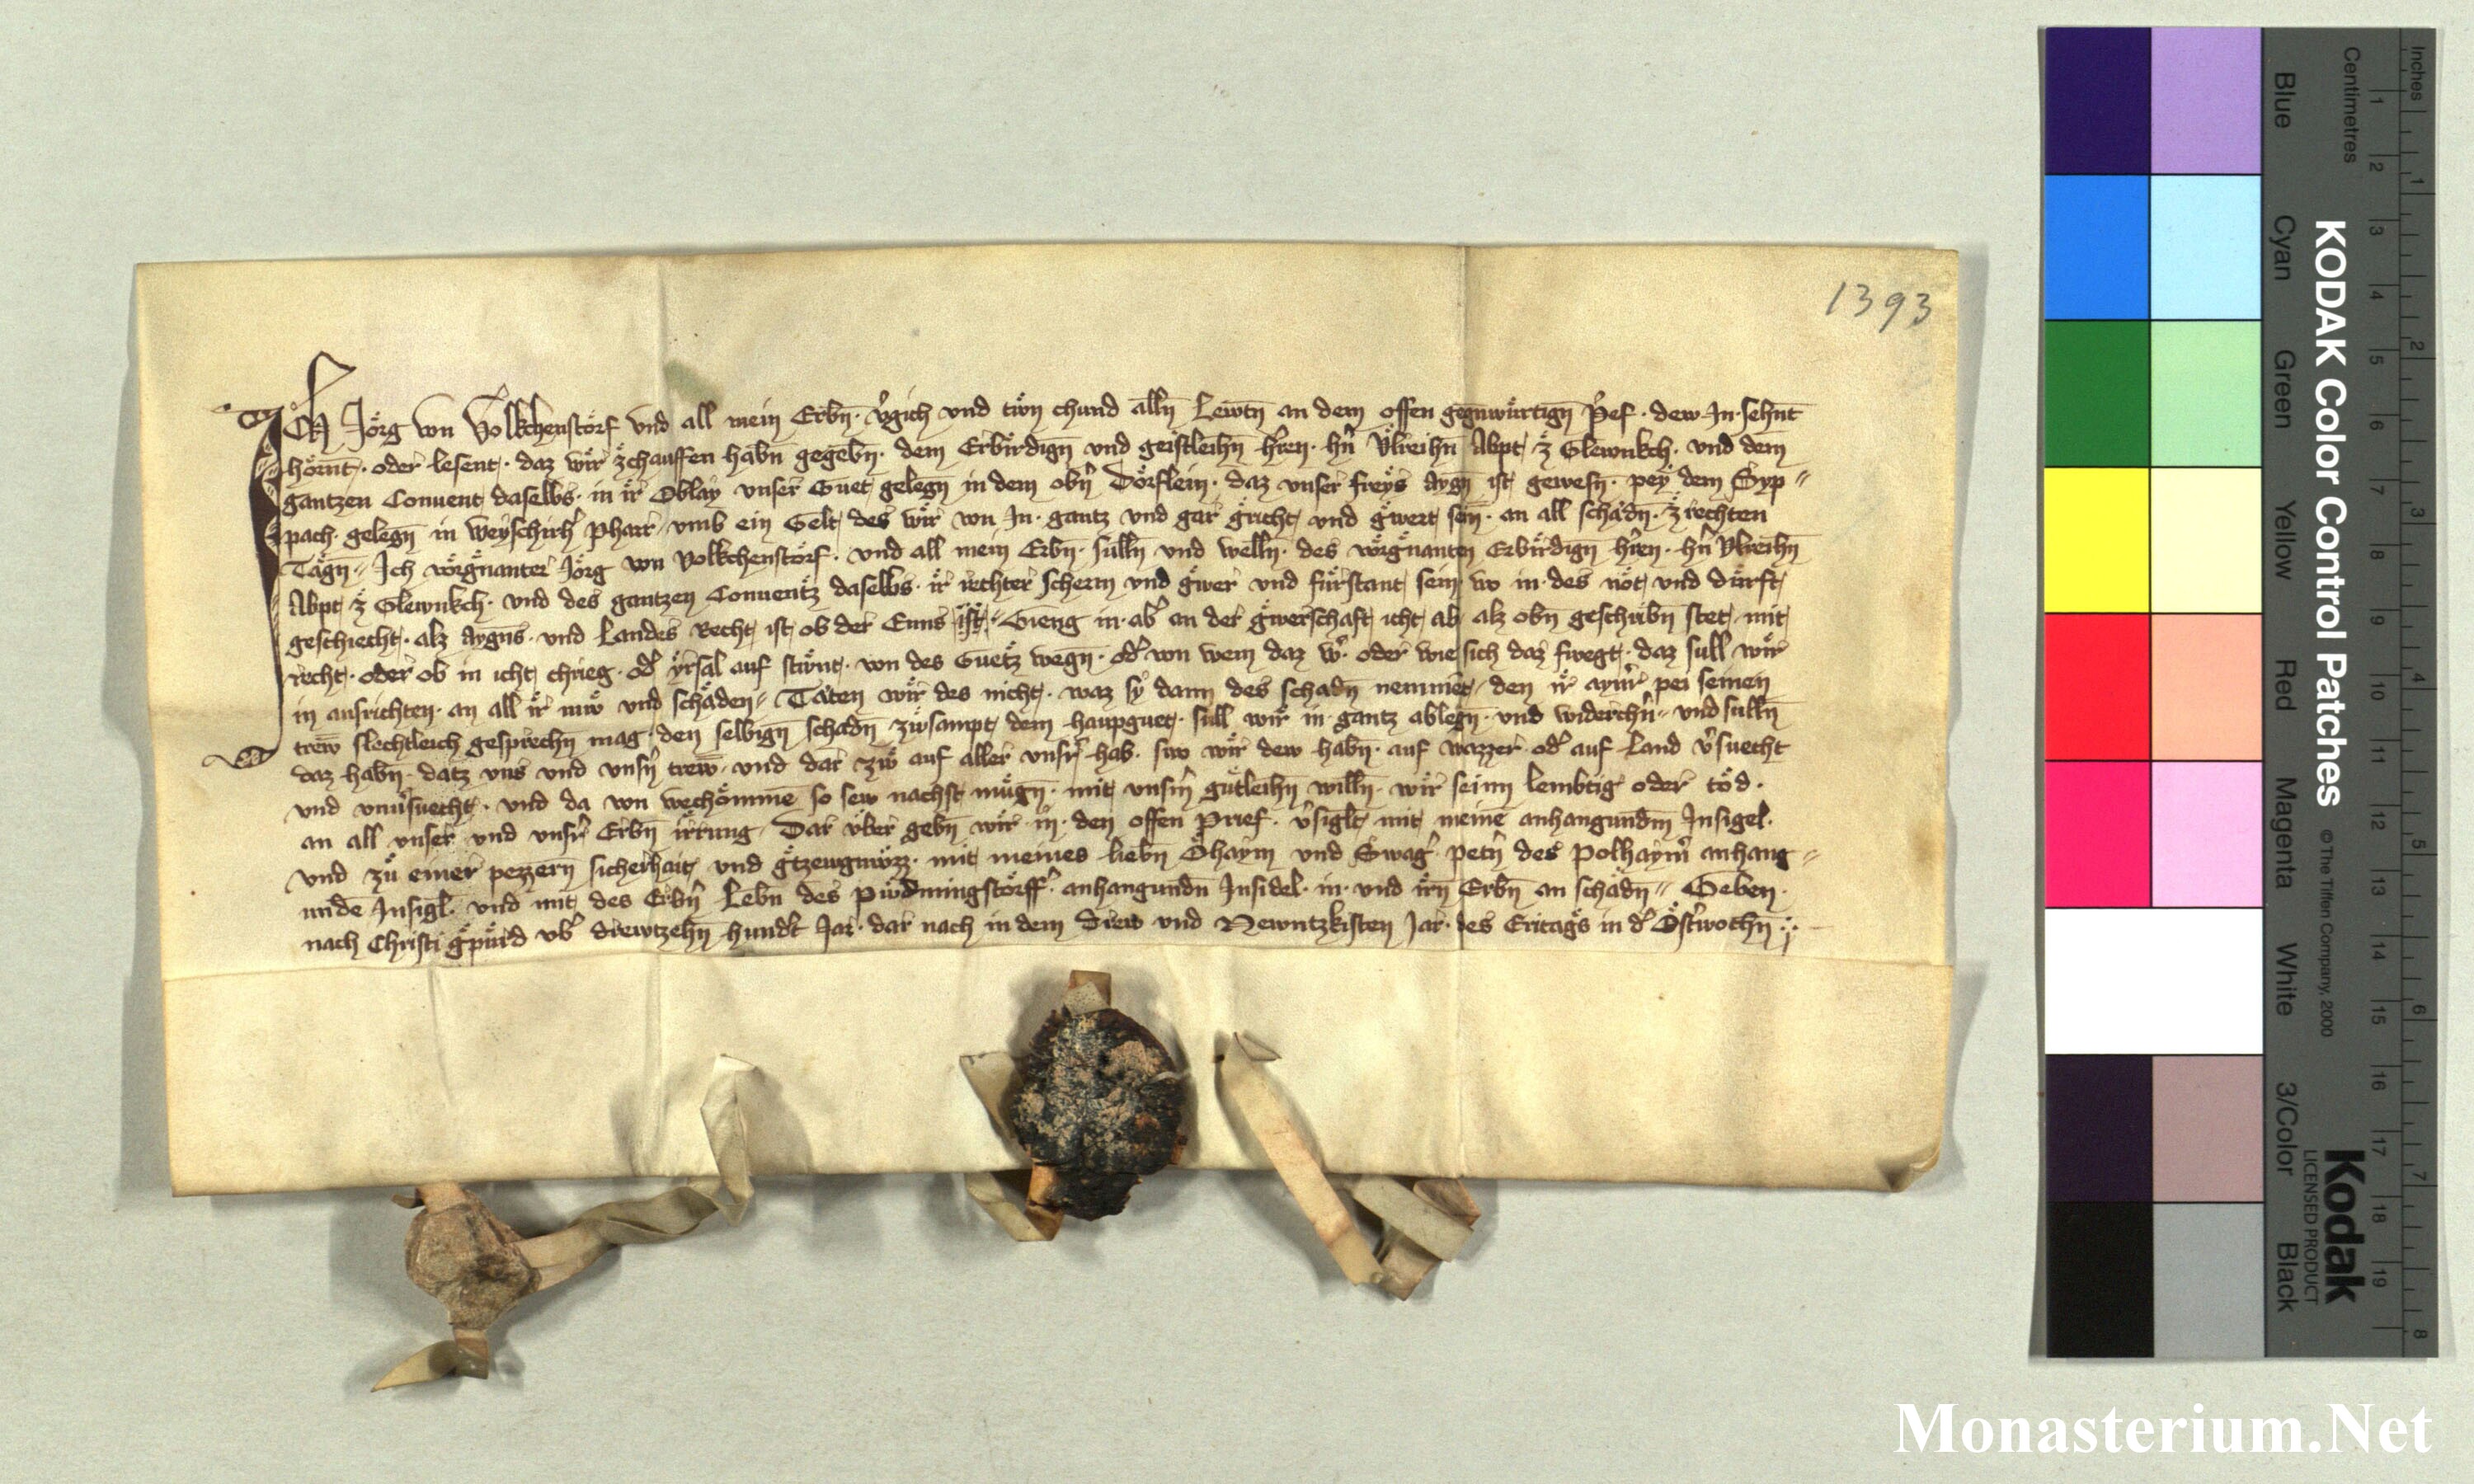 1393
ICH Jörg von Volkchenstörf und all mein Erbn̄ · v̓gich vnd twͦn chund alln̄ Lewtn̄ an dem offen gegnwürtign̄ p̓ef · dew In · sehnt
hörnt · oder lesent · daz wir zchauffen habn̄ gegebn̄ · dem Erbirdign̄ vnd geistleihn̄ h̓ren · hn̓ Vlreihn̄ Abpt ze Glewnkch · vnd dem
gantzen Conuent daselbs · in ir Oblay vnser Guet gelegn̄ in dem obn̓ Dörflein · daz vnser freys aygn̄ ist gewesn̄ · pey dem Syp〃
pach · gelegn̄ in Weyschirh̓ pharr · vmb ein Gelt des wir von In · gantz vnd gar g̓richt vnd g̓wert sein · an all schädn̄ · ze rechten
Tägn̄〃 Ich vörg̓nanter Jörg von Volkchenstörf · vnd all mein Erbn̄ · sulln̄ vnd welln̄ · des vörg̓nanten Erbirdign̄ h̓ren · hn̓ Vlreihn̄
Abpt ze Glewnkch · vnd des gantzen Conuentz daselbs · ir rechter scherm vnd g̓wer vnd fürstant sein wo in · des nöt vnd dürft
geschiecht · alz aygns · vnd Landes Recht ist ob der Enns ist · Gieng in · ab̓ an der g̓werschaft icht ab alz obn̄ geschribn̄ stet mit
recht · oder ob in icht chrieg · od̓ yrsal auf stwͦnt · von des Guetz wegn̄ · od̓ von wem daz w̓ · oder wie sich daz fwegt · daz sull wir
in ausrichten · an all ir mwͤ vnd schäden〃 Täten wir des nicht · waz sy dann des schadn̄ nemmet · den ir aym̓ pei seinen
trew̄ slechtleich gesprechn̄ mag · den selbign̄ schadn̄ zwͦsampt dem haupguet · sull wir in · gantz ablegn̄ · vnd widerchn̓〃 vnd sulln̄
daz habn̄ · datz vns vnd vnsn̓ trew̄ · vnd dar zwͦ auf aller vnsr̓ hab · swo wir dew habn̄ · auf wazzer · od̓ auf Land v̓suecht
vnd vnu̓suecht · vnd da von wechömmē so sew nachst mügn̄ · mit vnsm̓ gütleihn̄ willn̄ · wir seinn lembtig oder töd ·
an all vnser vnd vnsr̓ Erbn̄ irrung · Dar über gebn̄ wir in · den offen prief · v̓siglt mit meinē anhangundm̄ Insigel ·
vnd zu einer pezzern̄ sicherhait vnd g̓tzewgnüzz · mit meines liebn̄ Öhaym vnd Swag̓ petn̓ des Polhaym̓ anhang〃
undē Insigl · vnd mit des Erbn̓ Lebn̄ des piwdmingstörff̓ · anhangundn̄ Insidel · in · vnd irn̄ Erbn̄ an schädn̄〃 Geben ·
nach Christi g̓pürd vb̓ drewtzehn̄ hund̓t Jar · dar nach in dem Drew vnd Newntzkisten Jar · des Eritags in d̓ Öst̓wochn̄ ·
Inches
Centimetres
KODAK Color Control Patches
© The Tiffen Company, 2000
Kodak
LICENSED PRODUCT
Blue
Cyan
Green
Yellow
Red
Magenta
White
3/Color
Black
1 2 3 4 5 6 7 8 9 10 11 12 13 14 15 16 17 18 19
1 2 3 4 5 6 7 8
Monasterium.Net